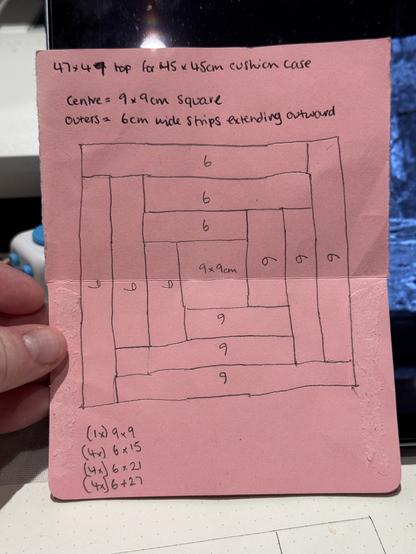 47x47 top for 45 x 45cm cushion case
Centre = 9 x 9cm square
Outers = 6cm wide strips extending outward
6
6
6
9 x 9cm
6
6
6
6
6
6
6
6
6
(1x) 9 x 9
(4x) 6 x 15
(4x) 6 x 21
(4x) 6 + 27